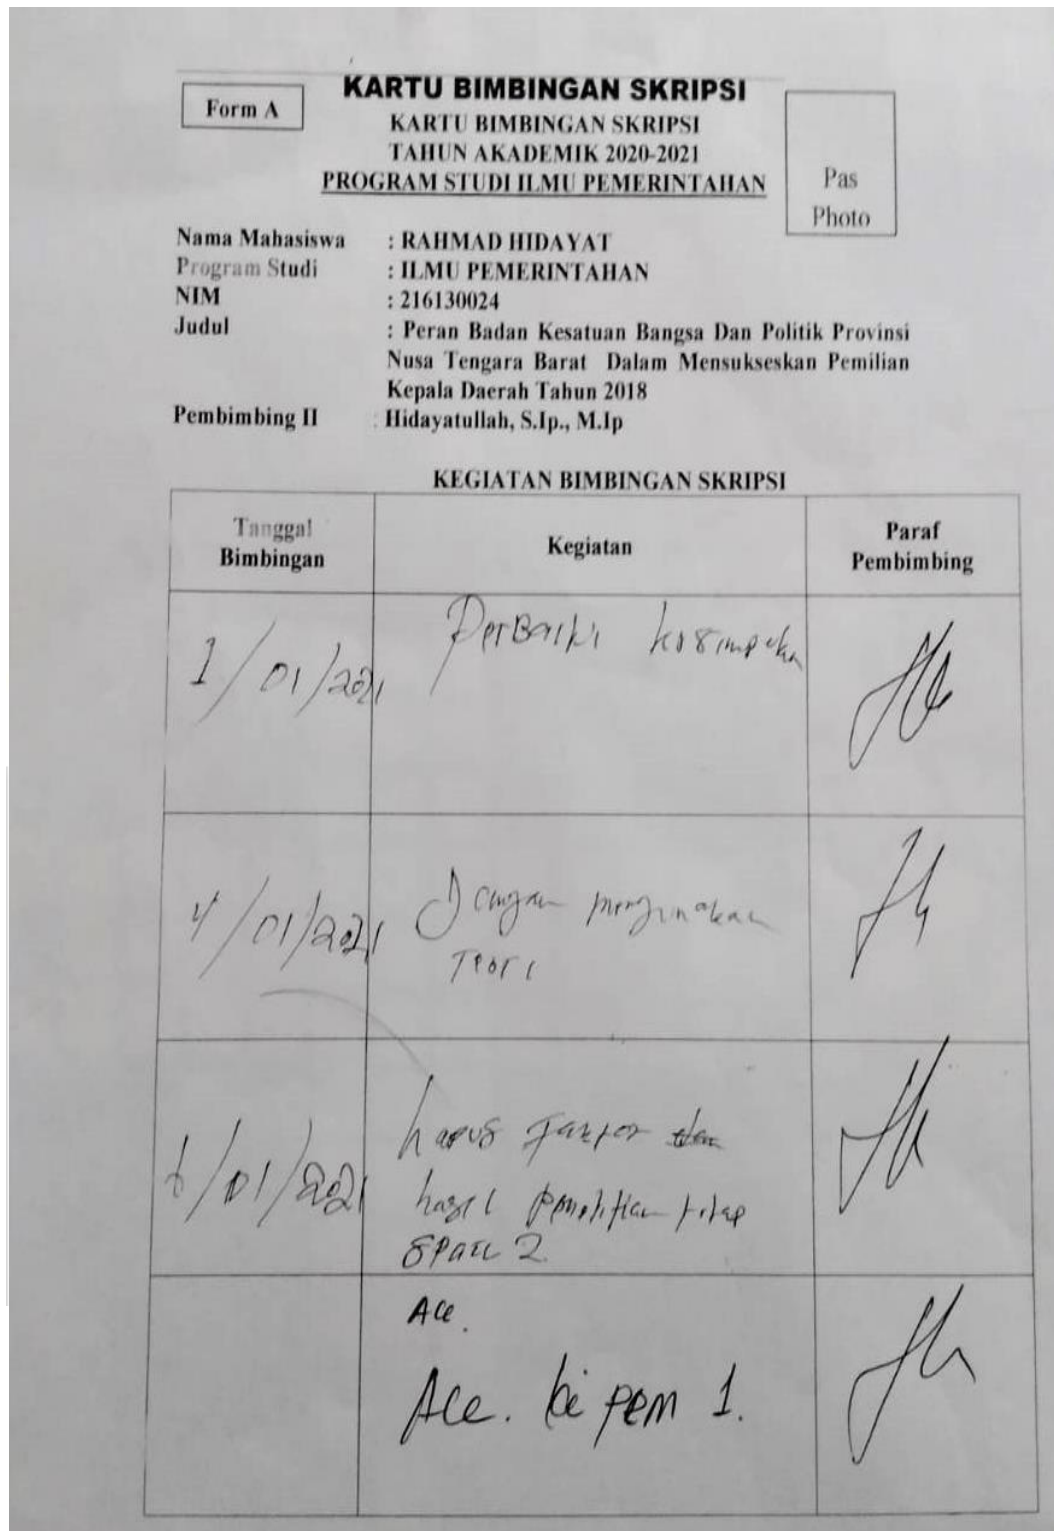 Form A
KARTU BIMBINGAN SKRIPSI
KARTU BIMBINGAN SKRIPSI
TAHUN AKADEMIK 2020-2021
PROGRAM STUDI ILMU PEMERINTAHAN
Pas
Photo
Nama Mahasiswa : RAHMAD HIDAYAT
Program Studi : ILMU PEMERINTAHAN
NIM : 216130024
Judul : Peran Badan Kesatuan Bangsa Dan Politik Provinsi
Nusa Tengara Barat Dalam Mensukseskan Pemilian
Kepala Daerah Tahun 2018
Pembimbing II : Hidayatullah, S.Ip., M.Ip
KEGIATAN BIMBINGAN SKRIPSI
Tanggal
Bimbingan
Kegiatan
Paraf
Pembimbing
1/01/2021
Perbaiki
4/01/2021
Teori
6/01/2021
harus
hasil penelitian
Spasi 2
Acc.
Acc. ke pem 1.